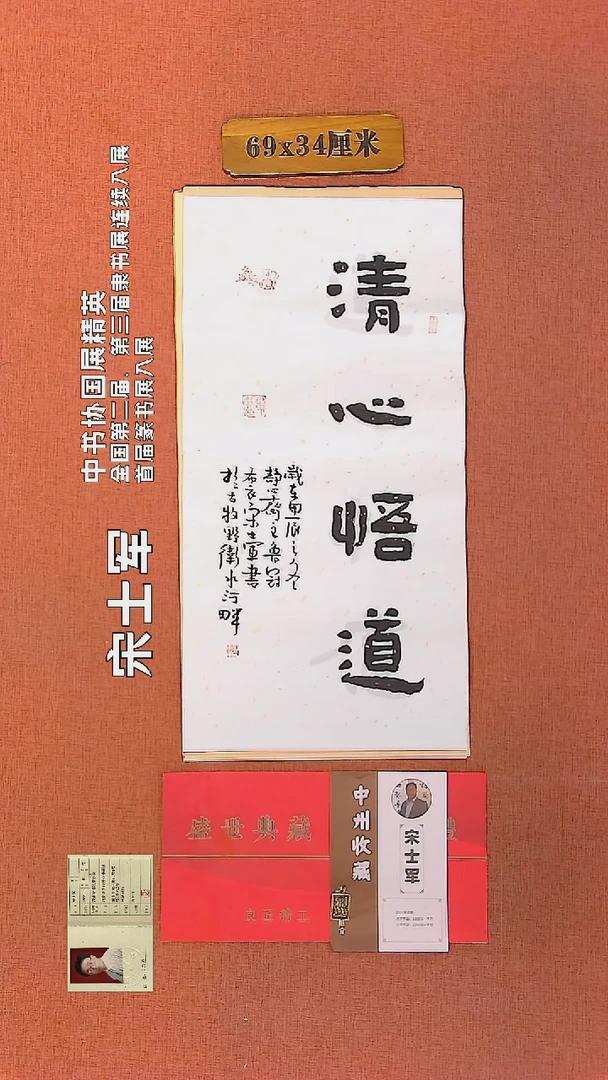 69x34厘米
清心悟道
歲在甲辰之
主魯
布衣宋士軍書
於古牧野衛水河畔
宋士军
中书协国展精英
全国第二届、第三届隶书展连续入展
首届篆书展入展
盛世典藏
良匠精工
中州收藏
宋士军